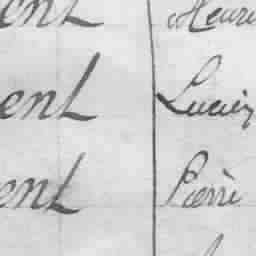 ent Henri
ent Lucien
ent Pierre